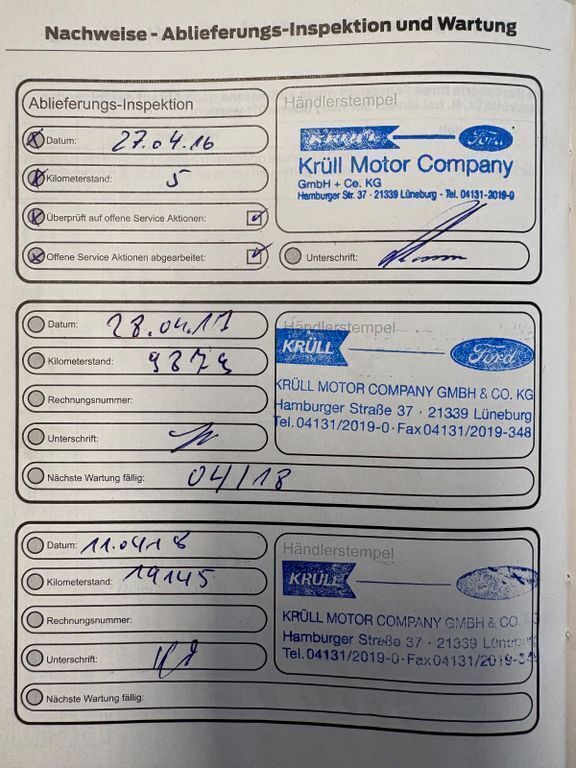 Nachweise - Ablieferungs-Inspektion und Wartung
Ablieferungs-Inspektion
Datum: 27.04.16
Kilometerstand: 5
Überprüft auf offene Service Aktionen:
Offene Service Aktionen abgearbeitet:
Händlerstempel
KRÜLL Ford
Krüll Motor Company
GmbH + Co. KG
Hamburger Str. 37 · 21339 Lüneburg - Tel. 04131-2019-0
Unterschrift:
Datum: 28.04.17
Kilometerstand:
Rechnungsnummer:
Unterschrift:
Nächste Wartung fällig: 04/18
Händlerstempel
KRÜLL Ford
KRÜLL MOTOR COMPANY GMBH & CO. KG
Hamburger Straße 37 · 21339 Lüneburg
Tel. 04131/2019-0 · Fax 04131/2019-348
Datum: 11.0418
Kilometerstand: 19145
Rechnungsnummer:
Unterschrift:
Nächste Wartung fällig:
Händlerstempel
KRÜLL
KRÜLL MOTOR COMPANY GMBH & CO.
Hamburger Straße 37 · 21339 Lüneburg
Tel. 04131/2019-0 · Fax 04131/2019-34